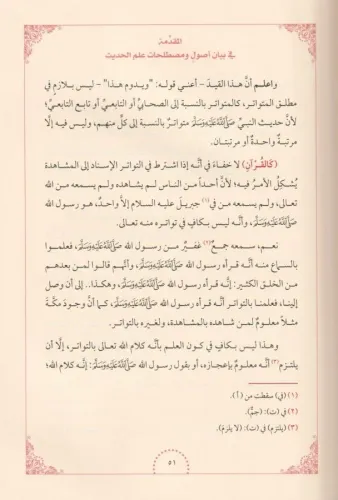 المقدّمة
في بيان أصول ومصطلحات علم الحديث
واعلم أنَّ هذا القيدَ - أعني قوله: "ويدوم هذا" - ليس بلازم في
مطلق المتواتر، كالمتواتر بالنسبة إلى الصحابيِّ أو التابعيِّ أو تابع التابعيِّ؛
لأنَّ حديث النبيِّ صَلَّى اللَّهُ عَلَيْهِ وَسَلَّمَ متواترٌ بالنسبة إلى كلٍّ منهم، وليس فيه إلَّا
مرتبةٌ واحدةٌ أو مرتبتان.
(كَالقُرْآنِ) لا خفاءَ في أنَّه إذا اشترط في التواتر الإسناد إلى المشاهدة
يُشكِلُ الأمرُ فيه؛ لأنَّ أحداً من الناس لم يشاهده ولم يسمعه من الله
تعالى، ولم يسمعه من في(١) جبريل عليه السلام إلَّا واحدٌ، هو رسول الله
صَلَّى اللَّهُ عَلَيْهِ وَسَلَّمَ، وأنَّه ليس بكافٍ في تواتره منه تعالى.
نعم، سمعه جمعٌ(٢) غفيرٌ من رسول الله صَلَّى اللَّهُ عَلَيْهِ وَسَلَّمَ، فعلموا
بالسماع منه أنَّه قرأه رسول الله صَلَّى اللَّهُ عَلَيْهِ وَسَلَّمَ، وأنَّهم قالوا لمن بعدهم
من الخلق الكثير: إنَّه قرأه رسول الله صَلَّى اللَّهُ عَلَيْهِ وَسَلَّمَ، وهكذا.. إلى أن وصل
إلينا، فعلمنا بالتواتر أنَّه قرأه رسول الله صَلَّى اللَّهُ عَلَيْهِ وَسَلَّمَ، كما أنَّ وجودَ مكّة
مثلاً معلومٌ لمن شاهده بالمشاهدة، ولغيره بالتواتر.
وهذا ليس بكافٍ في كون العلم بأنَّه كلام الله تعالى بالتواتر، إلَّا أن
يلتزم(٣) أنَّه معلومٌ بإعجازه، أو بقول رسول الله صَلَّى اللَّهُ عَلَيْهِ وَسَلَّمَ: إنَّه كلام الله؛
(١) (في) سقطت من (آ).
(٢) في (ت): (جمٌّ).
(٣) (يلتزم) في (ت): (لا يلزم).
٥١